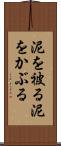 泥を被る泥
をかぶる